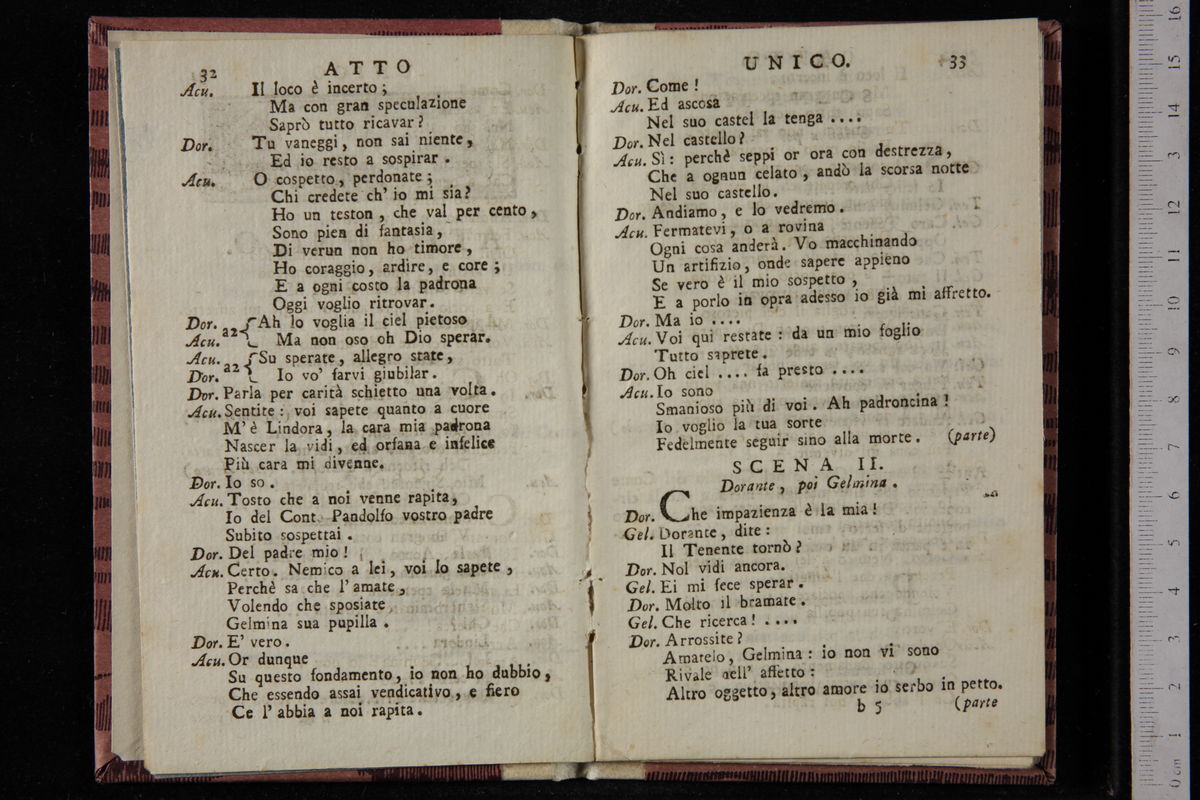 32 ATTO
Acu. Il loco è incerto ;
Ma con gran speculazione
Saprò tutto ricavar ?
Dor. Tu vaneggi, non sai niente,
Ed io resto a sospirar .
Acu. O cospetto, perdonate ;
Chi credete ch' io mi sia ?
Ho un teston, che val per cento,
Sono pien di fantasia,
Di verun non ho timore,
Ho coraggio, ardire, e core ;
E a ogni costo la padrona
Oggi voglio ritrovar.
Dor. Ah lo voglia il ciel pietoso
Acu. a2 Ma non oso oh Dio sperar.
Acu. Su sperate, allegro state,
Dor. a2 Io vo' farvi giubilar.
Dor. Parla per carità schietto una volta .
Acu. Sentite : voi sapete quanto a cuore
M' è Lindora, la cara mia padrona
Nascer la vidi, ed orfana e infelice
Più cara mi divenne.
Dor. Io so .
Acu. Tosto che a noi venne rapita,
Io del Cont. Pandolfo vostro padre
Subito sospettai .
Dor. Del padre mio !
Acu. Certo. Nemico a lei, voi lo sapete,
Perchè sa che l' amate,
Volendo che sposiate
Gelmina sua pupilla .
Dor. E' vero .
Acu. Or dunque
Su questo fondamento, io non ho dubbio,
Che essendo assai vendicativo, e fiero
Ce l' abbia a noi rapita .
UNICO. 33
Dor. Come !
Acu. Ed ascosa
Nel suo castel la tenga ....
Dor. Nel castello ?
Acu. Sì : perchè seppi or ora con destrezza,
Che a ognun celato, andò la scorsa notte
Nel suo castello.
Dor. Andiamo, e lo vedremo .
Acu. Fermatevi, o a rovina
Ogni cosa anderà. Vo macchinando
Un artifizio, onde sapere appieno
Se vero è il mio sospetto,
E a porlo in opra adesso io già mi affretto.
Dor. Ma io ....
Acu. Voi qui restate : da un mio foglio
Tutto saprete .
Dor. Oh ciel .... fa presto ....
Acu. Io sono
Smanioso più di voi . Ah padroncina !
Io voglio la tua sorte
Fedelmente seguir sino alla morte . (parte)
SCENA II.
Dorante, poi Gelmina .
Dor. Che impazienza è la mia !
Gel. Dorante, dite :
Il Tenente tornò ?
Dor. Nol vidi ancora.
Gel. Ei mi fece sperar .
Dor. Molto il bramate .
Gel. Che ricerca ! ....
Dor. Arrossite ?
Amatelo, Gelmina : io non vi sono
Rivale nell' affetto :
Altro oggetto, altro amore io serbo in petto.
b 5 (parte